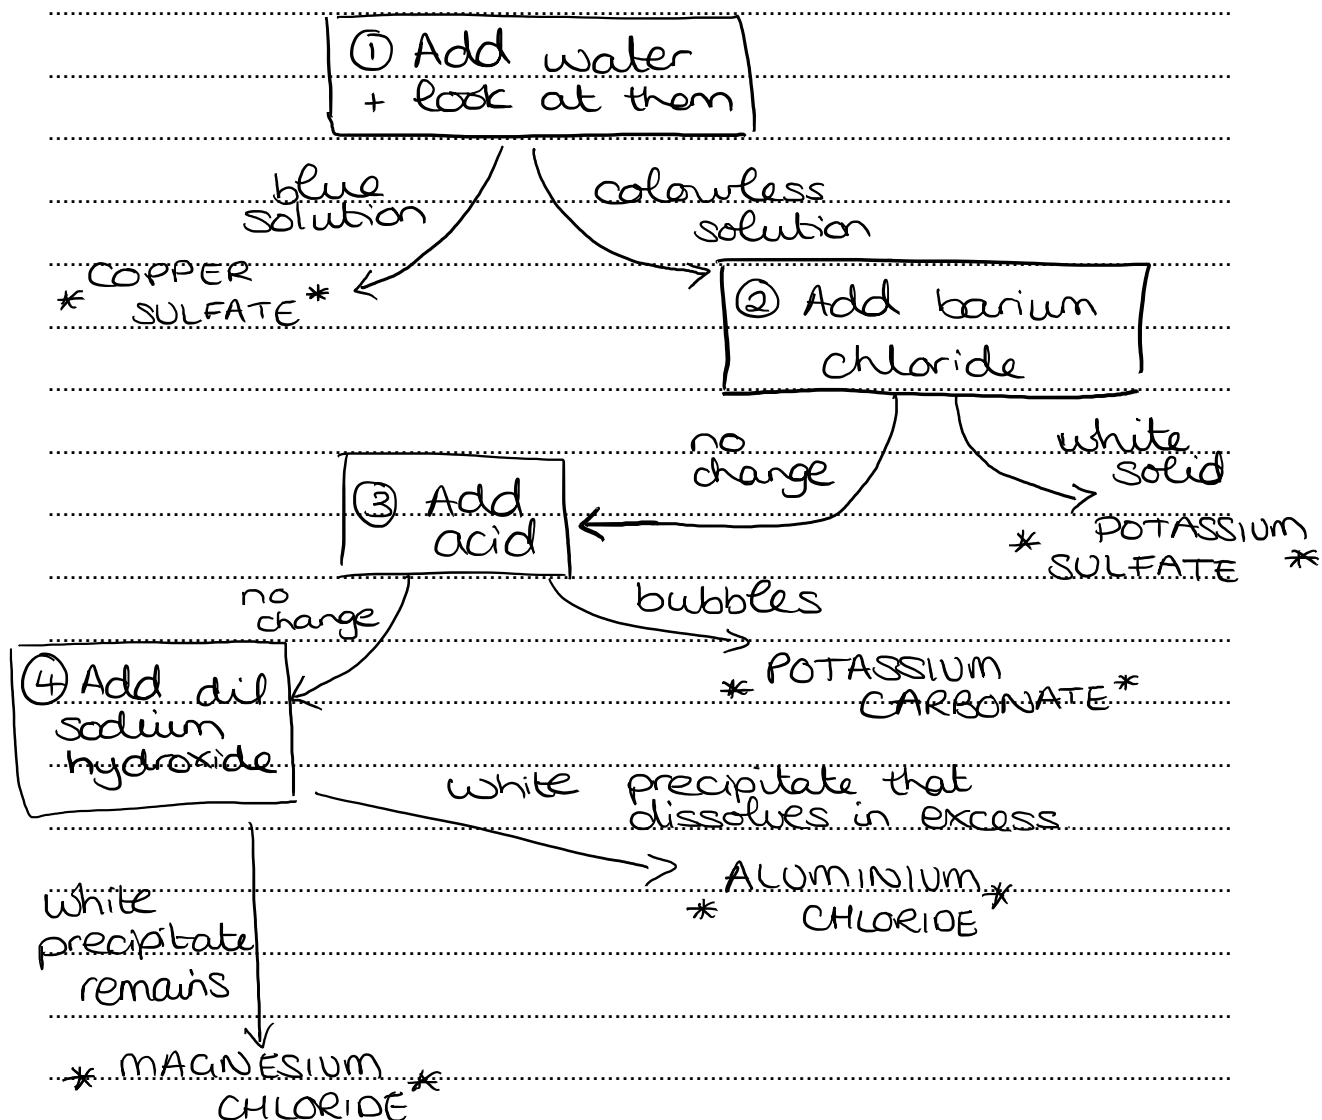 ① Add water
+ look at them
blue
solution
colourless
solution
* COPPER
SULFATE *
② Add barium
chloride
no
change
white
solid
③ Add
acid
* POTASSIUM
SULFATE *
no
change
bubbles
④ Add dil
sodium
hydroxide
* POTASSIUM
CARBONATE *
white precipitate that
dissolves in excess
* ALUMINIUM
CHLORIDE *
white
precipitate
remains
* MAGNESIUM
CHLORIDE *